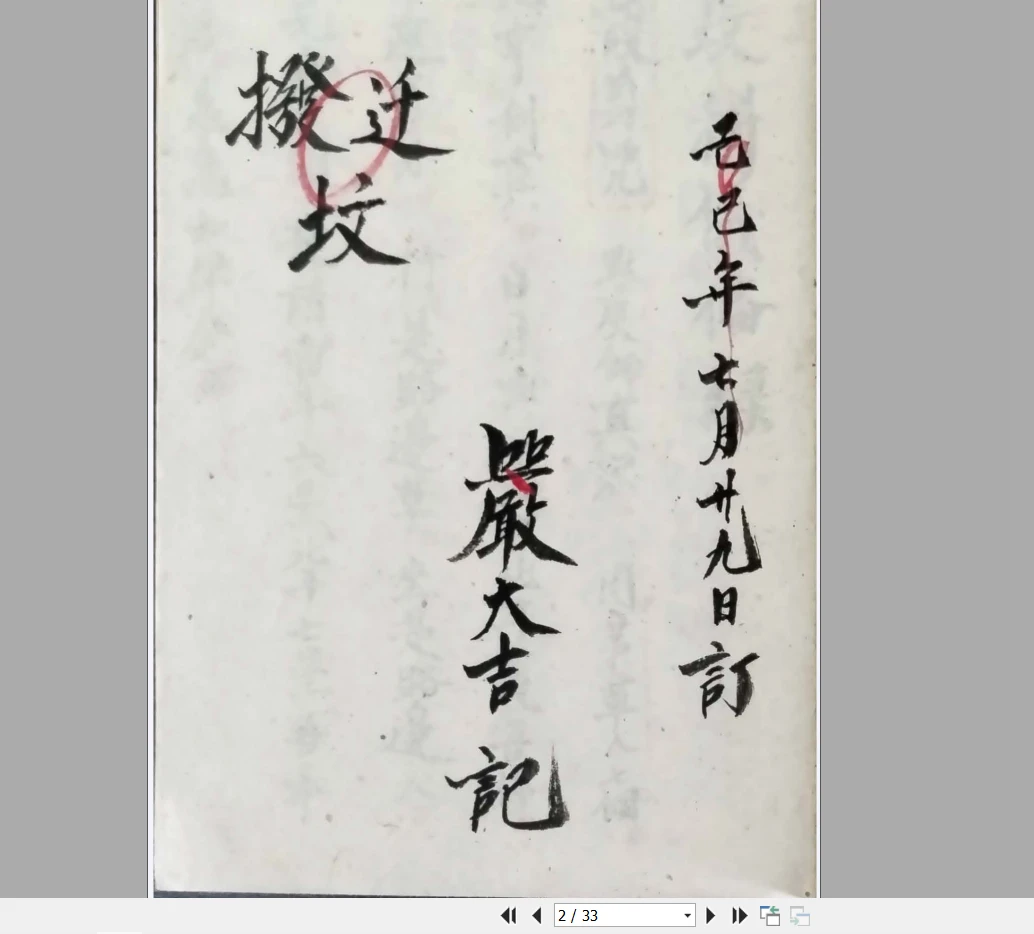 巳年七月廿九日訂
嚴大吉記
迁撥
坟
2 / 33